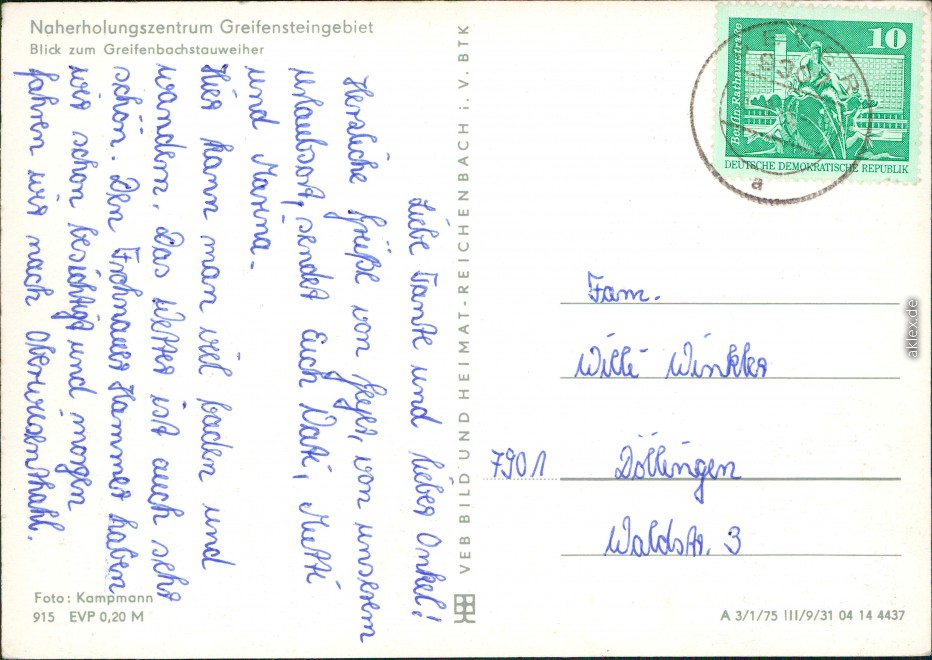 Naherholungszentrum Greifensteingebiet
Blick zum Greifenbachstauweiher
Liebe Tante und lieber Onkel!
Herzliche Grüße von Geyer, von unserem
Urlaubsort, sendet Euch Vati, Mutti
und Marina.
Hier kann man viel baden und
wandern. Das Wetter ist auch sehr
schön. Den Frohnauer Hammer haben
wir schon besichtigt und morgen
fahren wir nach Oberwiesenthahl.
Foto: Kampmann
915 EVP 0,20 M
VEB BILD UND HEIMAT-REICHENBACH i. V. BTK
Berlin Rathausstraße
10
DEUTSCHE DEMOKRATISCHE REPUBLIK
GEYER
a
Fam.
Willi Winkler
7901 Döllingen
Waldstr. 3
A 3/1/75 III/9/31 04 14 4437
aklex.de